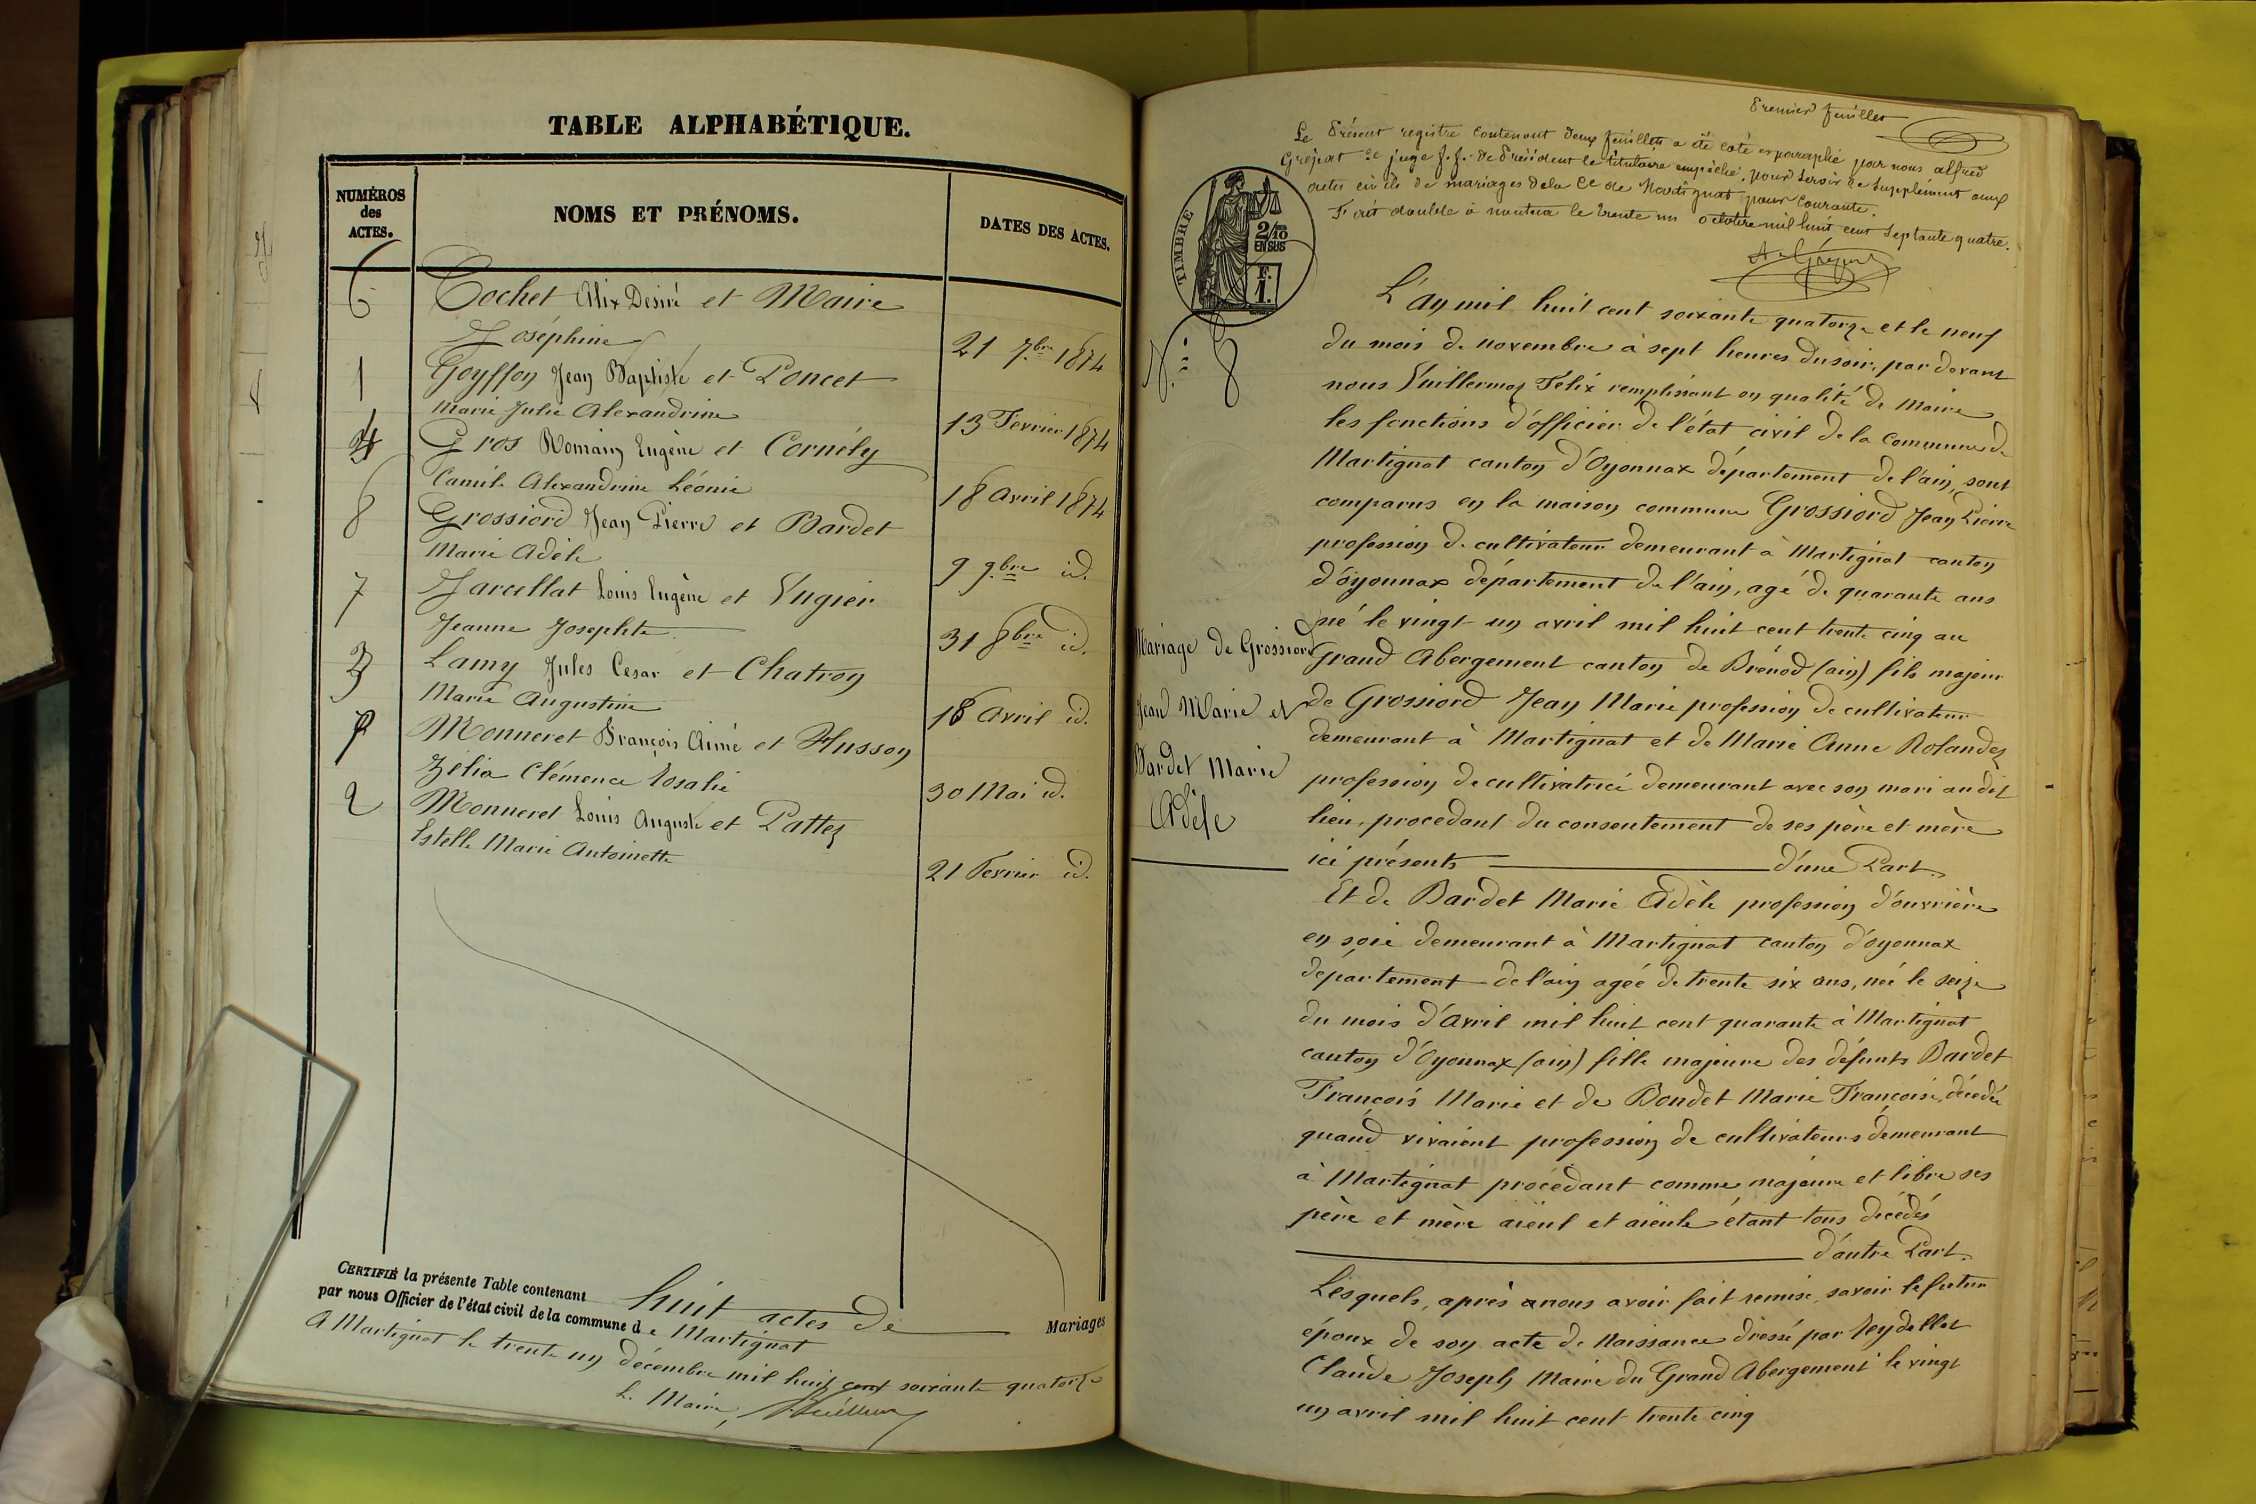 TABLE ALPHABÉTIQUE.
NUMÉROS
des
ACTES.
NOMS ET PRÉNOMS.
DATES DES ACTES.
6 Cochet Alix Desiré et Maire
Joséphine 21 7bre 1874
1 Goyffon Jean Baptiste et Poncet
Marie Julie Alexandrine 13 Février 1874
4 Gros Romain Eugène et Cornély
Camile Alexandrine Léonie 18 Avril 1874
8 Grossiord Jean Pierre et Bardet
Marie Adèle 9 9bre id.
7 Jarcellat Louis Eugène et Vugier
Jeanne Josephte 31 8bre id.
3 Lamy Jules Cesar et Chatron
Marie Augustine 18 Avril id.
Monneret François Aimé et Husson
Zélia Clémence Rosalie 30 Mai id.
2 Monneret Louis Auguste et Pattez
Estelle Marie Antoinette 21 Fevrier id.
CERTIFIÉ la présente Table contenant huit actes de Mariages
par nous Officier de l'état civil de la commune de Martignat
A Martignat le trente un décembre mil huit cent soixante quatorze
Le Maire,
Premier feuillet
Le Présent registre contenant deux feuillets a été coté et paraphé par nous alfred
juge f.f. de Président le titulaire empêché, pour servir de supplément aux
actes civils de mariages de la Ce de Martignat pour courante.
Fait double à nantua le trente un octobre mil huit cent septante quatre.
TIMBRE
2/10
EN SUS
F.
1.
N° 8
L'an mil huit cent soixante quatorze et le neuf
du mois de novembre à sept heures du soir, par devant
nous Vuillermoz Félix remplissant en qualité de Maire
les fonctions d'officier de l'état civil de la commune de
Martignat canton d'Oyonnax département de l'ain, sont
comparus en la maison commune Grossiord Jean Pierre
profession de cultivateur demeurant à Martignat canton
d'oyonnax département de l'ain, agé de quarante ans
né le vingt un avril mil huit cent trente cinq au
Grand Abergement canton de Brénod (ain) fils majeur
de Grossiord Jean Marie profession de cultivateur
demeurant à Martignat et de Marie Anne Rolandez
profession de cultivatrice demeurant avec son mari au dit
lieu, procedant du consentement de ses père et mère
ici présents d'une Part.
Mariage de Grossiord
Jean Marie et
Bardet Marie
Adèle
Et de Bardet Marie Adèle profession d'ouvrière
en soie demeurant à Martignat canton d'oyonnax
département de l'ain agée de trente six ans, née le seize
du mois d'Avril mil huit cent quarante à Martignat
canton d'Oyonnax (ain) fille majeure des défunts Bardet
François Marie et de Bondet Marie Françoise, décédés
quand vivaient profession de cultivateurs demeurant
à Martignat procédant comme majeure et libre ses
père et mère aïeul et aïeule étant tous décédés
d'autre Part.
Lesquels, après anous avoir fait remise, savoir le futur
époux de son acte de Naissance dressé par Reydellet
Claude Joseph Maire du Grand Abergement le vingt
un avril mil huit cent trente cinq